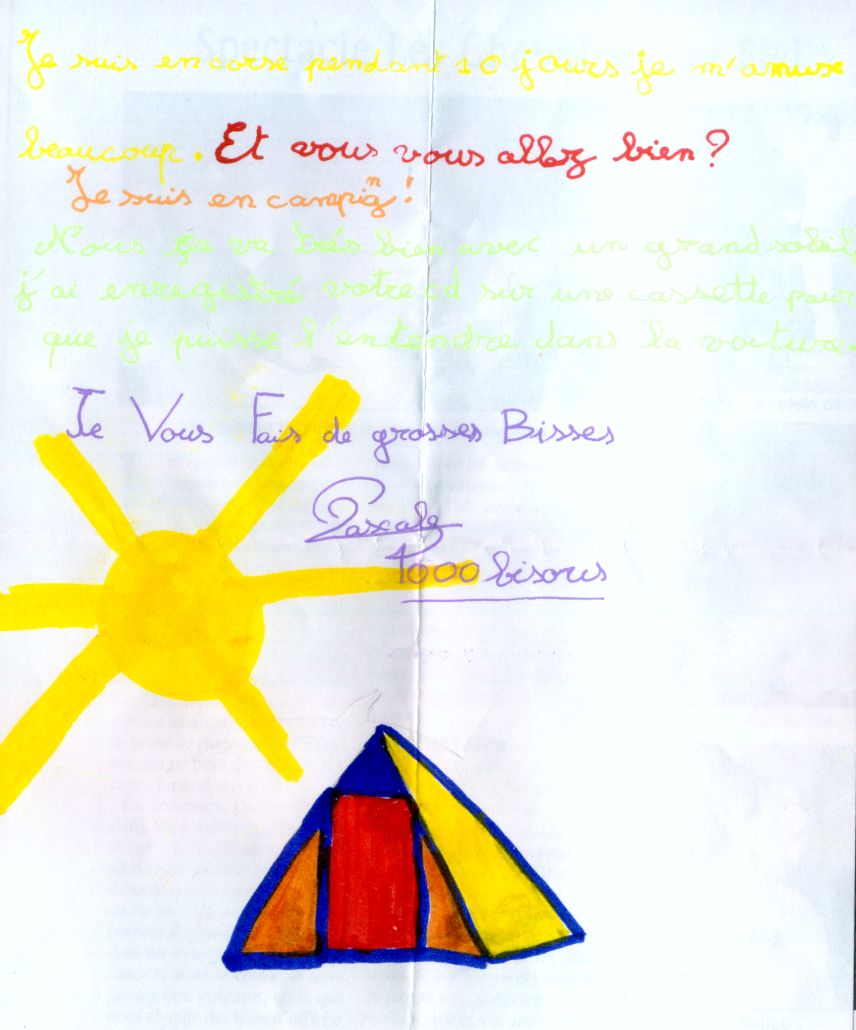 Je suis en corse pendant 10 jours je m'amuse
beaucoup. Et vous vous allez bien ?
Je suis en campign !
Nous ça va trés bien avec un grand soleil
j'ai enregistré votre cd sur une cassette pour
que je puisse l'entendre dans la voiture.
Je Vous Fais de grosses Bisses
Pascale
1000 bisous